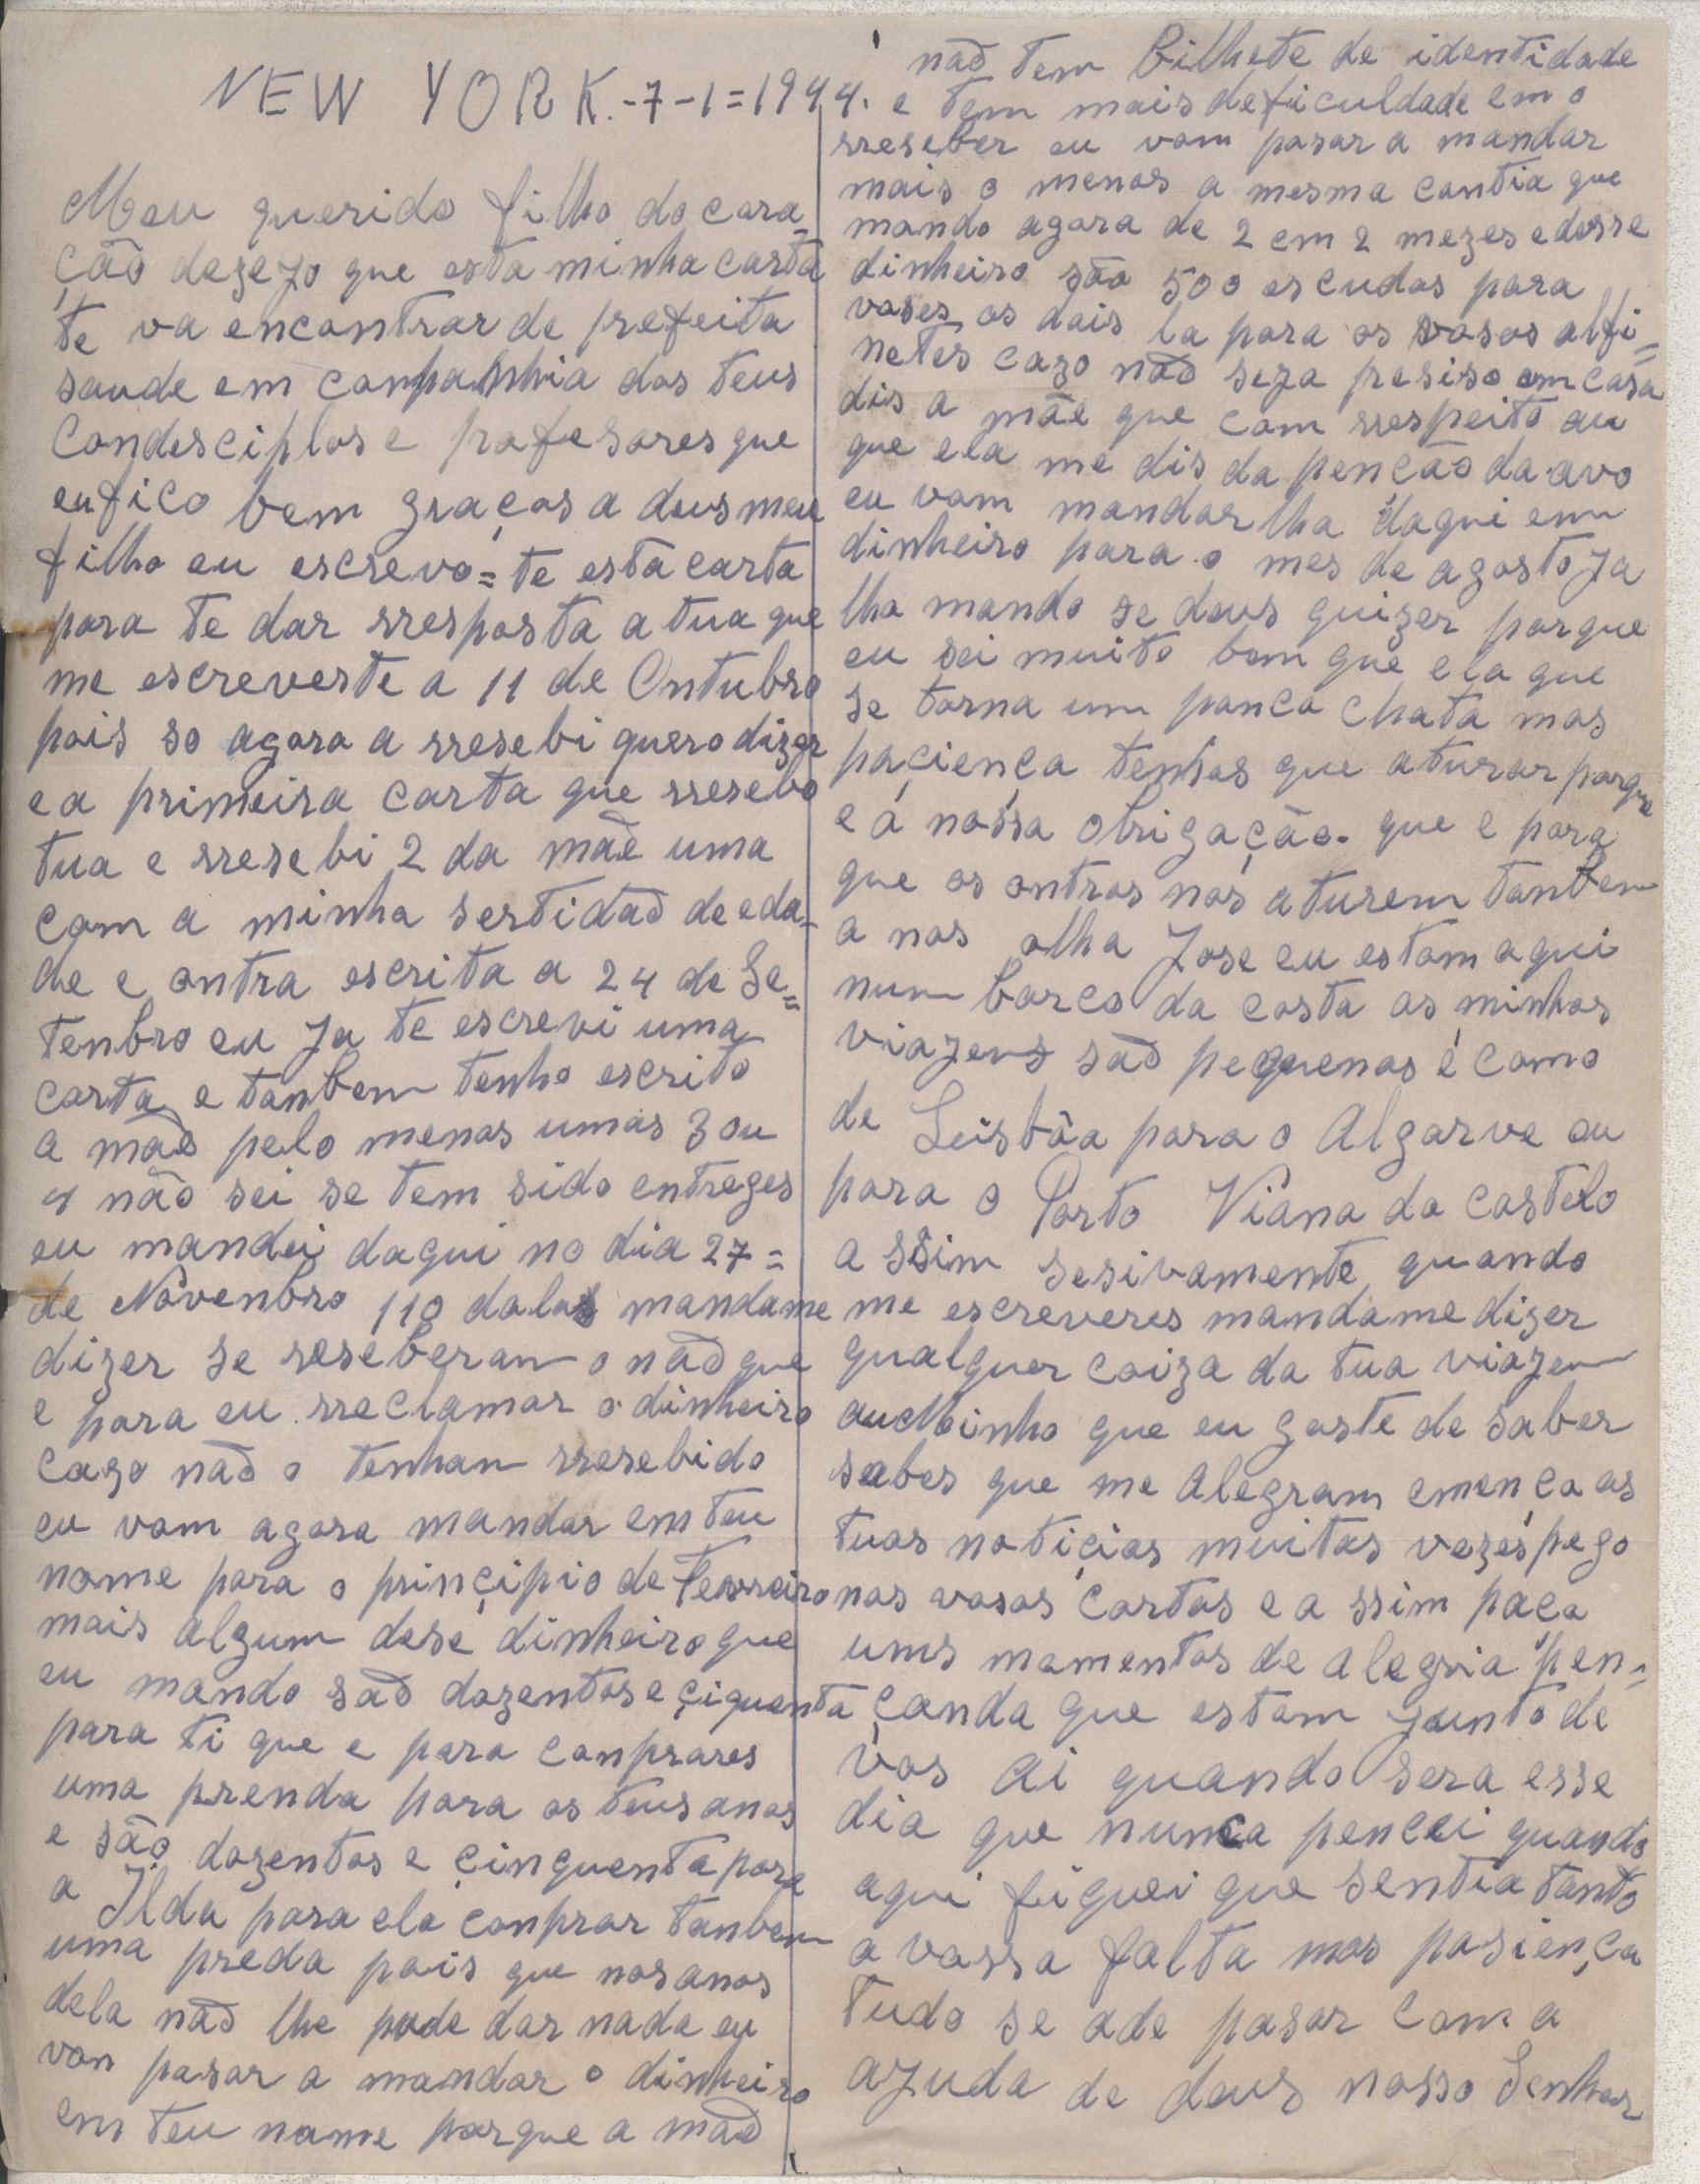 NEW YORK.-7-1=1944.
Meu querido filho do cora=
ção dezejo que esta minha carta
te va encontrar de prefeita
saude em companhia dos teus
Condesciplos e profesores que
eu fico bem graças a deus meu
filho eu escrevo=te esta carta
para te dar rresposta a tua que
me escreveste a 11 de Outubro
pois so agora a rresebi quero dizer
e a primeira carta que rresebo
tua e rresebi 2 da mãe uma
com a minha sertidaõ de eda=
de e outra escrita a 24 de Se=
tenbro eu ja te escrevi uma
carta e tanbem tenho escrito
a mãe pelo menos umas 3 ou
4 não sei se tem sido entreges
eu mandei daqui no dia 27=
de Novenbro 110 dolas manda me
dizer se reseberam o naõ que
e para eu rreclamar o dinheiro
cazo naõ o tenham rresebido
eu vom agora mandar em teu
nome para o prinçipio de Fevreiro
mais algum dese dinheiro que
eu mando saõ dozentos e çiquenta
para ti que e para conprares
uma prenda para os teus anos
e são dozentos e çinquenta para
a Ilda para ela conprar tanbem
uma preda pois que nos anos
dela naõ lhe pude dar nada eu
von pasar a mandar o dinheiro
em teu nome porque a mãe
naõ tem bilhete de identidade
e tem mais deficuldade em o
rreseber eu vom pasar a mandar
mais o menos a mesma contia que
mando agora de 2 em 2 mezes e desse
dinheiro são 500 escudos para
voses os dois la para os vosos alfi=
netes cazo naõ seja presiso em casa
dis a mãe que com rrespeito au
que ela me dis da penção da avo
eu vom mandar lha daqui em
dinheiro para o mes de agosto ja
lho mando se deus quizer porque
eu sei muito bem que ela que
se torna um pouco chata mas
paçiença tenhas que aturar porque
e á nossa obrigação. que e para
que os outros nos aturem tanbem
a nos olha Jose eu estom aqui
num barco da costa as minhas
viajens saõ pequenas é como
de Leisbôa para o Algarve ou
para o Porto Viana do Castelo
assim sesivamente quando
me escreveres manda me dizer
qualquer coiza da tua viajem
au Moinho que eu goste de saber
sabes que me alegram emença as
tuas notiçias muitas vezes pego
nas vosas cartas e a ssim paço
ums momentos de alegria pen=
çando que estom junto de
vos ai quando sera esse
dia que nunca pencei quando
aqui fiquei que sentia tanto
a vossa falta mas pasiença
tudo se ade pasar com a
ajuda de deus nosso Senhor